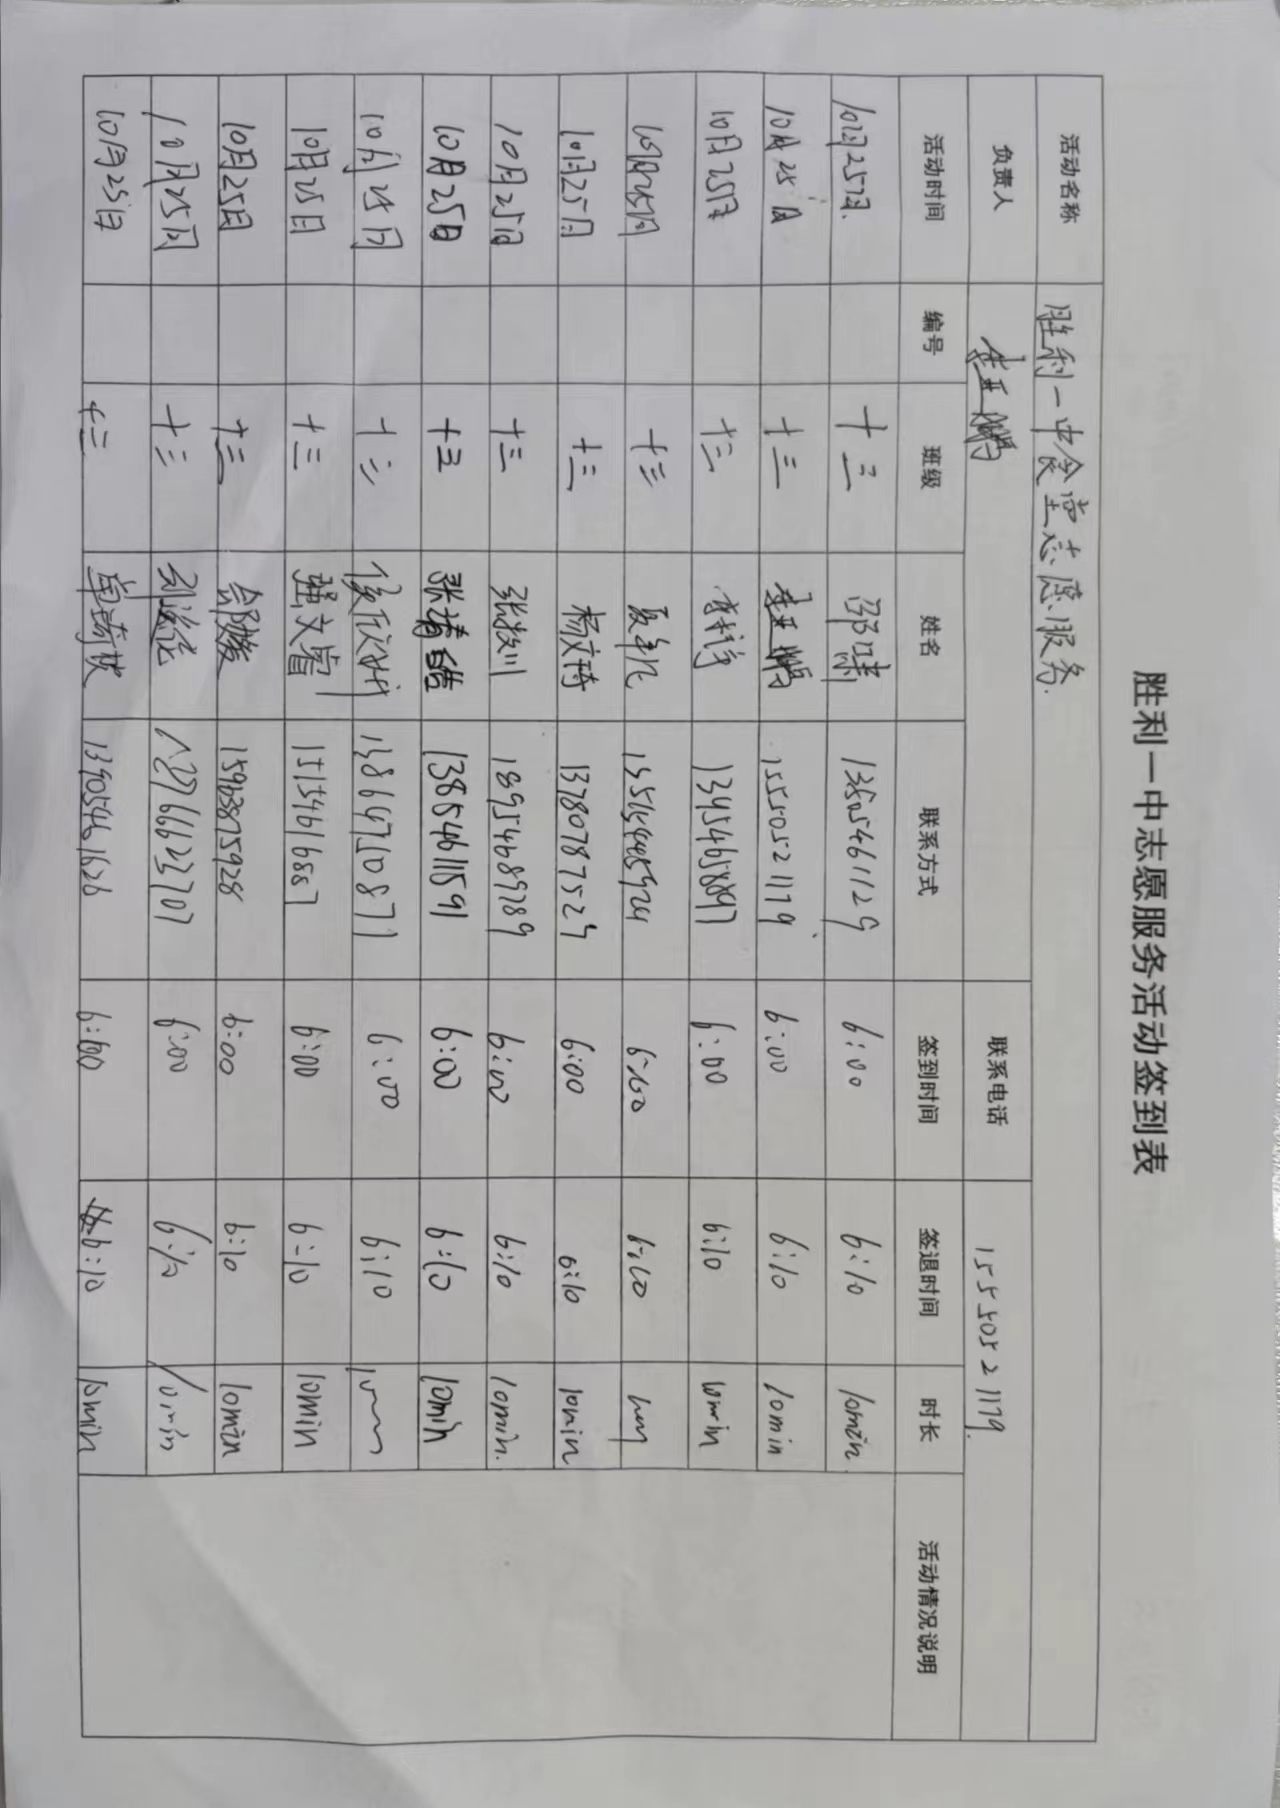 胜利一中志愿服务活动签到表
活动名称 胜利一中食堂志愿服务.
负责人 李亚鹏 联系电话 15550521179.
活动时间 编号 班级 姓名 联系方式 签到时间 签退时间 时长 活动情况说明
10月25日. 十三 6:00 6:10 10min.
10月25日 十三 李亚鹏 15550521179 6:00 6:10 10min
10月25日 十三 6:00 6:10 10min
10月25日 十三 6:00 6:10
10月25日 十三 杨文琦 13780787529 6:00 6:10 10min
10月25日 十三 18954689789 6:00 6:10 10min.
10月25日 十三 张靖皓 13854611591 6:00 6:10 10min
10月25日 十三 13864710871 6:00 6:10
10月25日 十三 强文睿 15154616887 6:00 6:10 10min
10月25日 十三 15963875928 6:00 6:10 10min
10月25日 十三 6:00 6:10 10min
10月25日 十三 6:00 6:10 10min